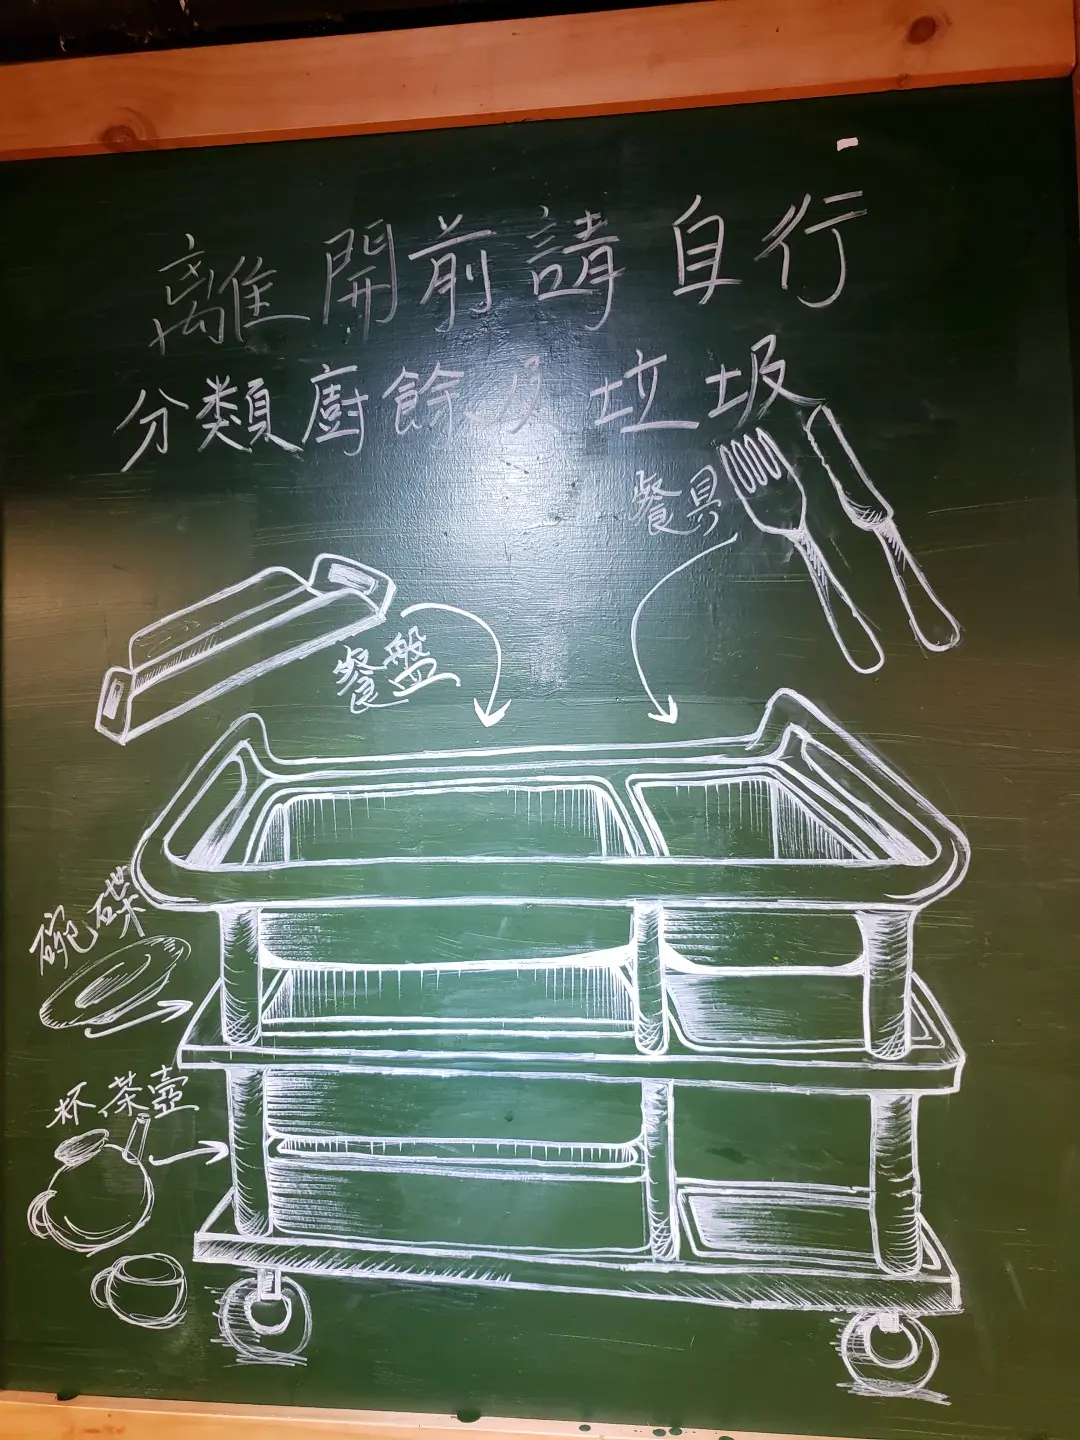 離開前請自行
分類廚餘及垃圾
餐具
餐盤
碗碟
杯茶壺